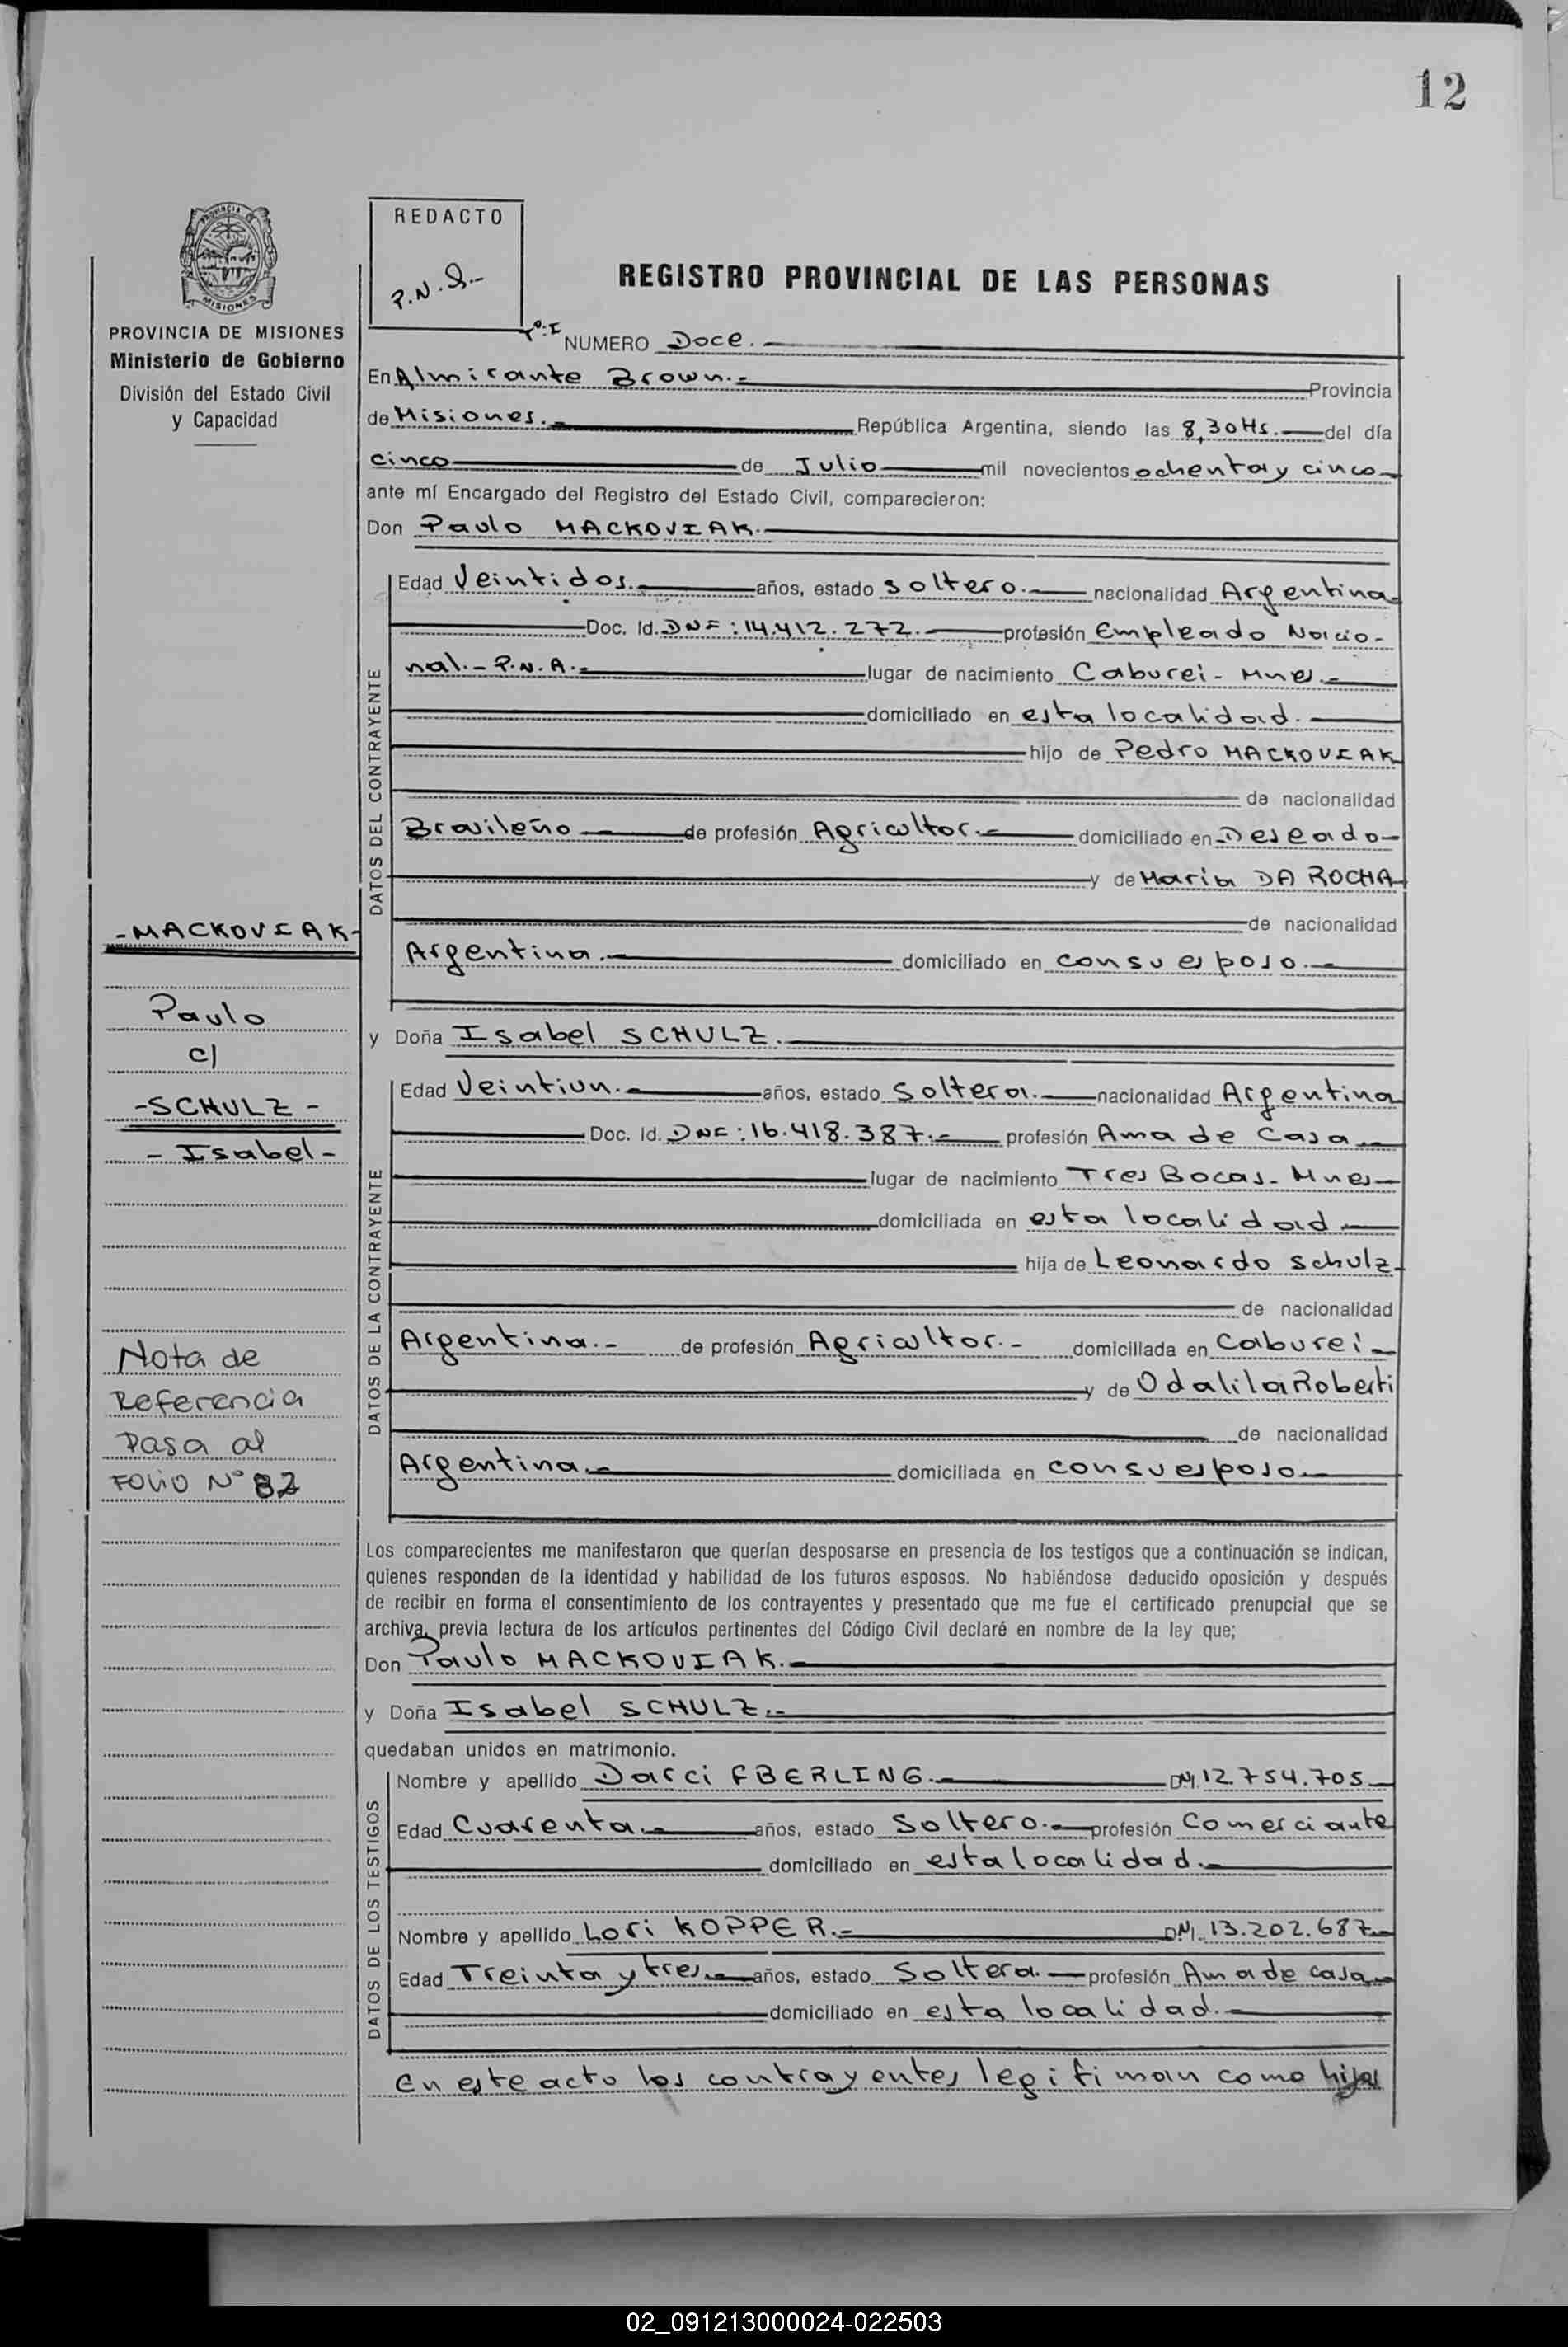 12
REDACTO
P.N.S.-
REGISTRO PROVINCIAL DE LAS PERSONAS
PROVINCIA DE MISIONES
Ministerio de Gobierno
División del Estado Civil
y Capacidad
Tº:I NUMERO Doce.-
En Almirante Brown.- Provincia
de Misiones.- República Argentina, siendo las 8,30Hs.- del día
cinco de Julio mil novecientos ochenta y cinco
ante mí Encargado del Registro del Estado Civil, comparecieron:
Don Paulo MACKOVIAK.-
DATOS DEL CONTRAYENTE
Edad Veintidos.- años, estado soltero.- nacionalidad Argentina
Doc. Id. DNI:14.412.272.- profesión Empleado Nacio-
nal.- P.N.A.- lugar de nacimiento Caburei- Mnes.-
domiciliado en esta localidad.-
hijo de Pedro MACKOVIAK
de nacionalidad
Brasileño de profesión Agricultor.- domiciliado en Deseado-
y de Maria DA ROCHA
de nacionalidad
Argentina.- domiciliado en con su esposo.-
y Doña Isabel SCHULZ.-
DATOS DE LA CONTRAYENTE
Edad Veintiun.- años, estado Soltera.- nacionalidad Argentina
Doc. Id. DNI:16.418.387.- profesión Ama de Casa
lugar de nacimiento Tres Bocas- Mnes-
domiciliada en esta localidad
hija de Leonardo Schulz-
de nacionalidad
Argentina.- de profesión Agricultor.- domiciliada en Caburei-
y de Odalila Roberti
de nacionalidad
Argentina.- domiciliada en con su esposo
-MACKOVIAK-
Paulo
c/
-SCHULZ-
-Isabel-
Nota de
Referencia
Pasa al
FOLIO Nº 82
Los comparecientes me manifestaron que querían desposarse en presencia de los testigos que a continuación se indican,
quienes responden de la identidad y habilidad de los futuros esposos. No habiéndose deducido oposición y después
de recibir en forma el consentimiento de los contrayentes y presentado que me fue el certificado prenupcial que se
archiva, previa lectura de los artículos pertinentes del Código Civil declaré en nombre de la ley que;
Don Paulo MACKOVIAK.-
y Doña Isabel SCHULZ.-
quedaban unidos en matrimonio.
DATOS DE LOS TESTIGOS
Nombre y apellido Darci EBERLING.- DNI 12.754.705
Edad Cuarenta.- años, estado Soltero.- profesión Comerciante
domiciliado en esta localidad.-
Nombre y apellido Lori KOPPER.- DNI 13.202.687
Edad Treinta y tres.- años, estado Soltera.- profesión Ama de casa
domiciliado en esta localidad.-
En este acto los contrayentes legitiman como hijos
02_091213000024-022503